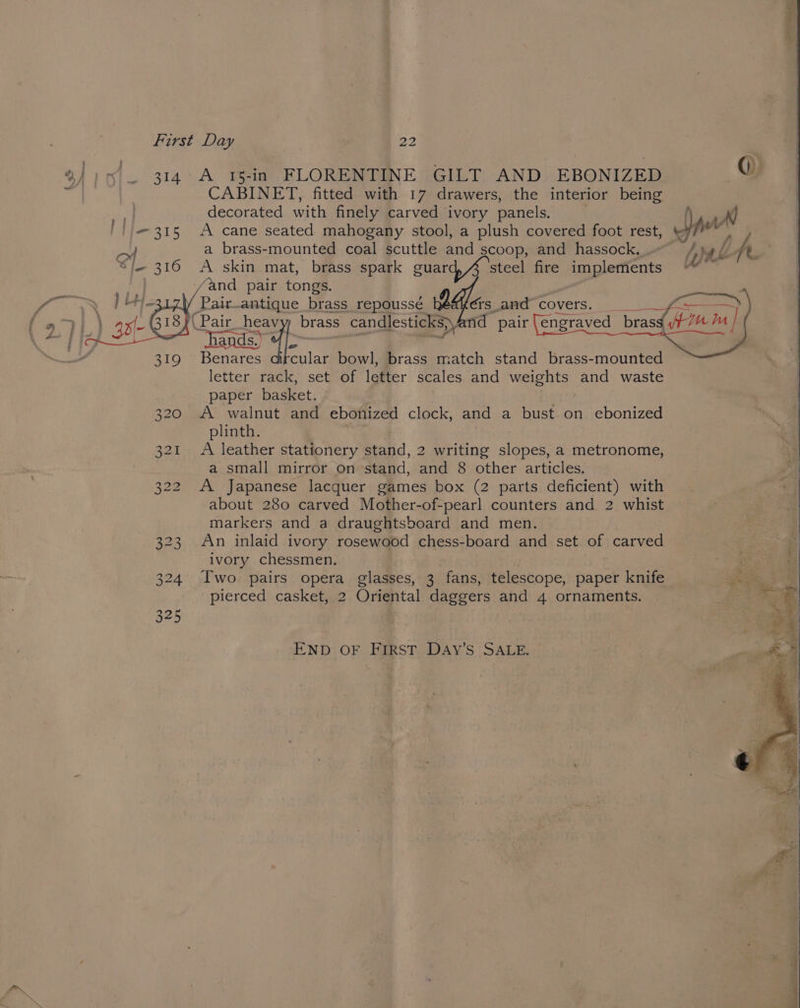 First Day 22
314 A 15-in FLORENTINE GILT AND EBONIZED
CABINET, fitted with 17 drawers, the interior being
decorated with finely carved ivory panels.
315 A cane seated mahogany stool, a plush covered foot rest,
a brass-mounted coal scuttle and scoop, and hassock.
316 A skin mat, brass spark guard, 4 steel fire implements
and pair tongs.
317 Pair antique brass repoussé beakers and covers.
35/- 318 Pair heavy brass candlesticks, and pair engraved brass
hands.
319 Benares circular bowl, brass match stand brass-mounted
letter rack, set of letter scales and weights and waste
paper basket.
320 A walnut and ebonized clock, and a bust on ebonized
plinth.
321 A leather stationery stand, 2 writing slopes, a metronome,
a small mirror on stand, and 8 other articles.
322 A Japanese lacquer games box (2 parts deficient) with
about 280 carved Mother-of-pearl counters and 2 whist
markers and a draughtsboard and men.
323 An inlaid ivory rosewood chess-board and set of carved
ivory chessmen.
324 Two pairs opera glasses, 3 fans, telescope, paper knife
pierced casket, 2 Oriental daggers and 4 ornaments.
325
END OF FIRST DAY'S SALE.